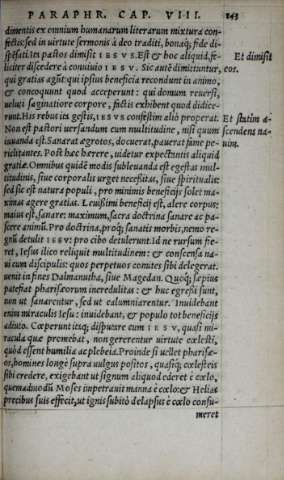 PARAPHR. CAP. VIII. 143
dimentis ex omnium humanarum literarum mixtura con-
fectis: sed in virtute sermonis à deo traditi, bonaq́; fide di-
spẽsati. Ita pastos dimisit IESVS. Est & hoc aliquid, fe-
liciter discedere à conuiuio IESV. Sic autẽ dimittuntur,
qui gratias agũt: qui ipsius beneficia recondunt in animo,
& concoquunt quod acceperunt: qui domum reuersi,
ueluti saginatiore corpore, factis exhibent quod didice-
runt. His rebus ita gestis, IESVS confestim aliò properat.
Non est pastori uersandum cum multitudine, nisi quum
iuuanda est. Sanarat ægrotos, docuerat, pauerat fame pe-
riclitantes. Post hæc hærere, uidetur expectantis aliquid
gratiæ. Omnibus quidẽ modis subleuanda est egestas mul-
titudinis, siue corporalis urget necessitas, siue spiritualis:
sed sic est natura populi, pro minimis beneficijs solet ma-
ximas agere gratias. Leuissimi beneficij est, alere corpus:
maius est, sanare: maximum, sacra doctrina sanare ac pa-
scere animũ. Pro doctrina, proq́; sanatis morbis, nemo re-
gnũ detulit IESV: pro cibo detulerunt. Id ne rursum fie-
ret, Iesus ilico reliquit multitudinem: & conscensa na-
ui cum discipulis: quos perpetuos comites sibi delegerat.
uenit in fines Dalmanutha, siue Magedan. Quoq́; sæpius
patefiat pharisæorum incredulitas: & huc egressi sunt,
non ut sanarentur, sed ut calumniarentur. Inuidebant
enim miraculis Iesu: inuidebant, & populo tot beneficijs
adiuto. Cœperunt itaq́; disputare cum IESV, quasi mi-
racula quæ promebat, non gererentur uirtute cœlesti,
quòd essent humilia ac plebeia. Proinde si uellet pharisæ-
os, homines longè supra uulgus positos, quasiq́; cœlesteis
sibi credere, exigebant ut signum aliquod ederet è cœlo,
quemadmodũ Moses impetrauit manna è cœlo: & Helias
precibus suis effecit, ut ignis subitò delapsus è cœlo consu-
meret
Et dimisit
eos.
Et statim a-
scendens na-
uim.